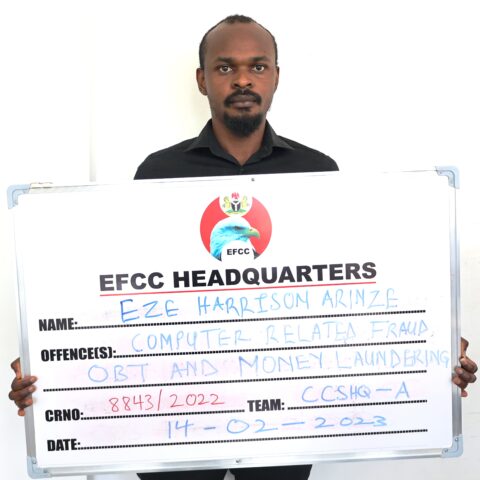 EFCC
EFCC HEADQUARTERS
NAME: EZE HARRISON ARINZE
OFFENCE(S): COMPUTER RELATED FRAUD.
OBT AND MONEY LAUNDERING
CRNO: 8843/2022 TEAM: CCSHQ-A
DATE: 14-02-2023